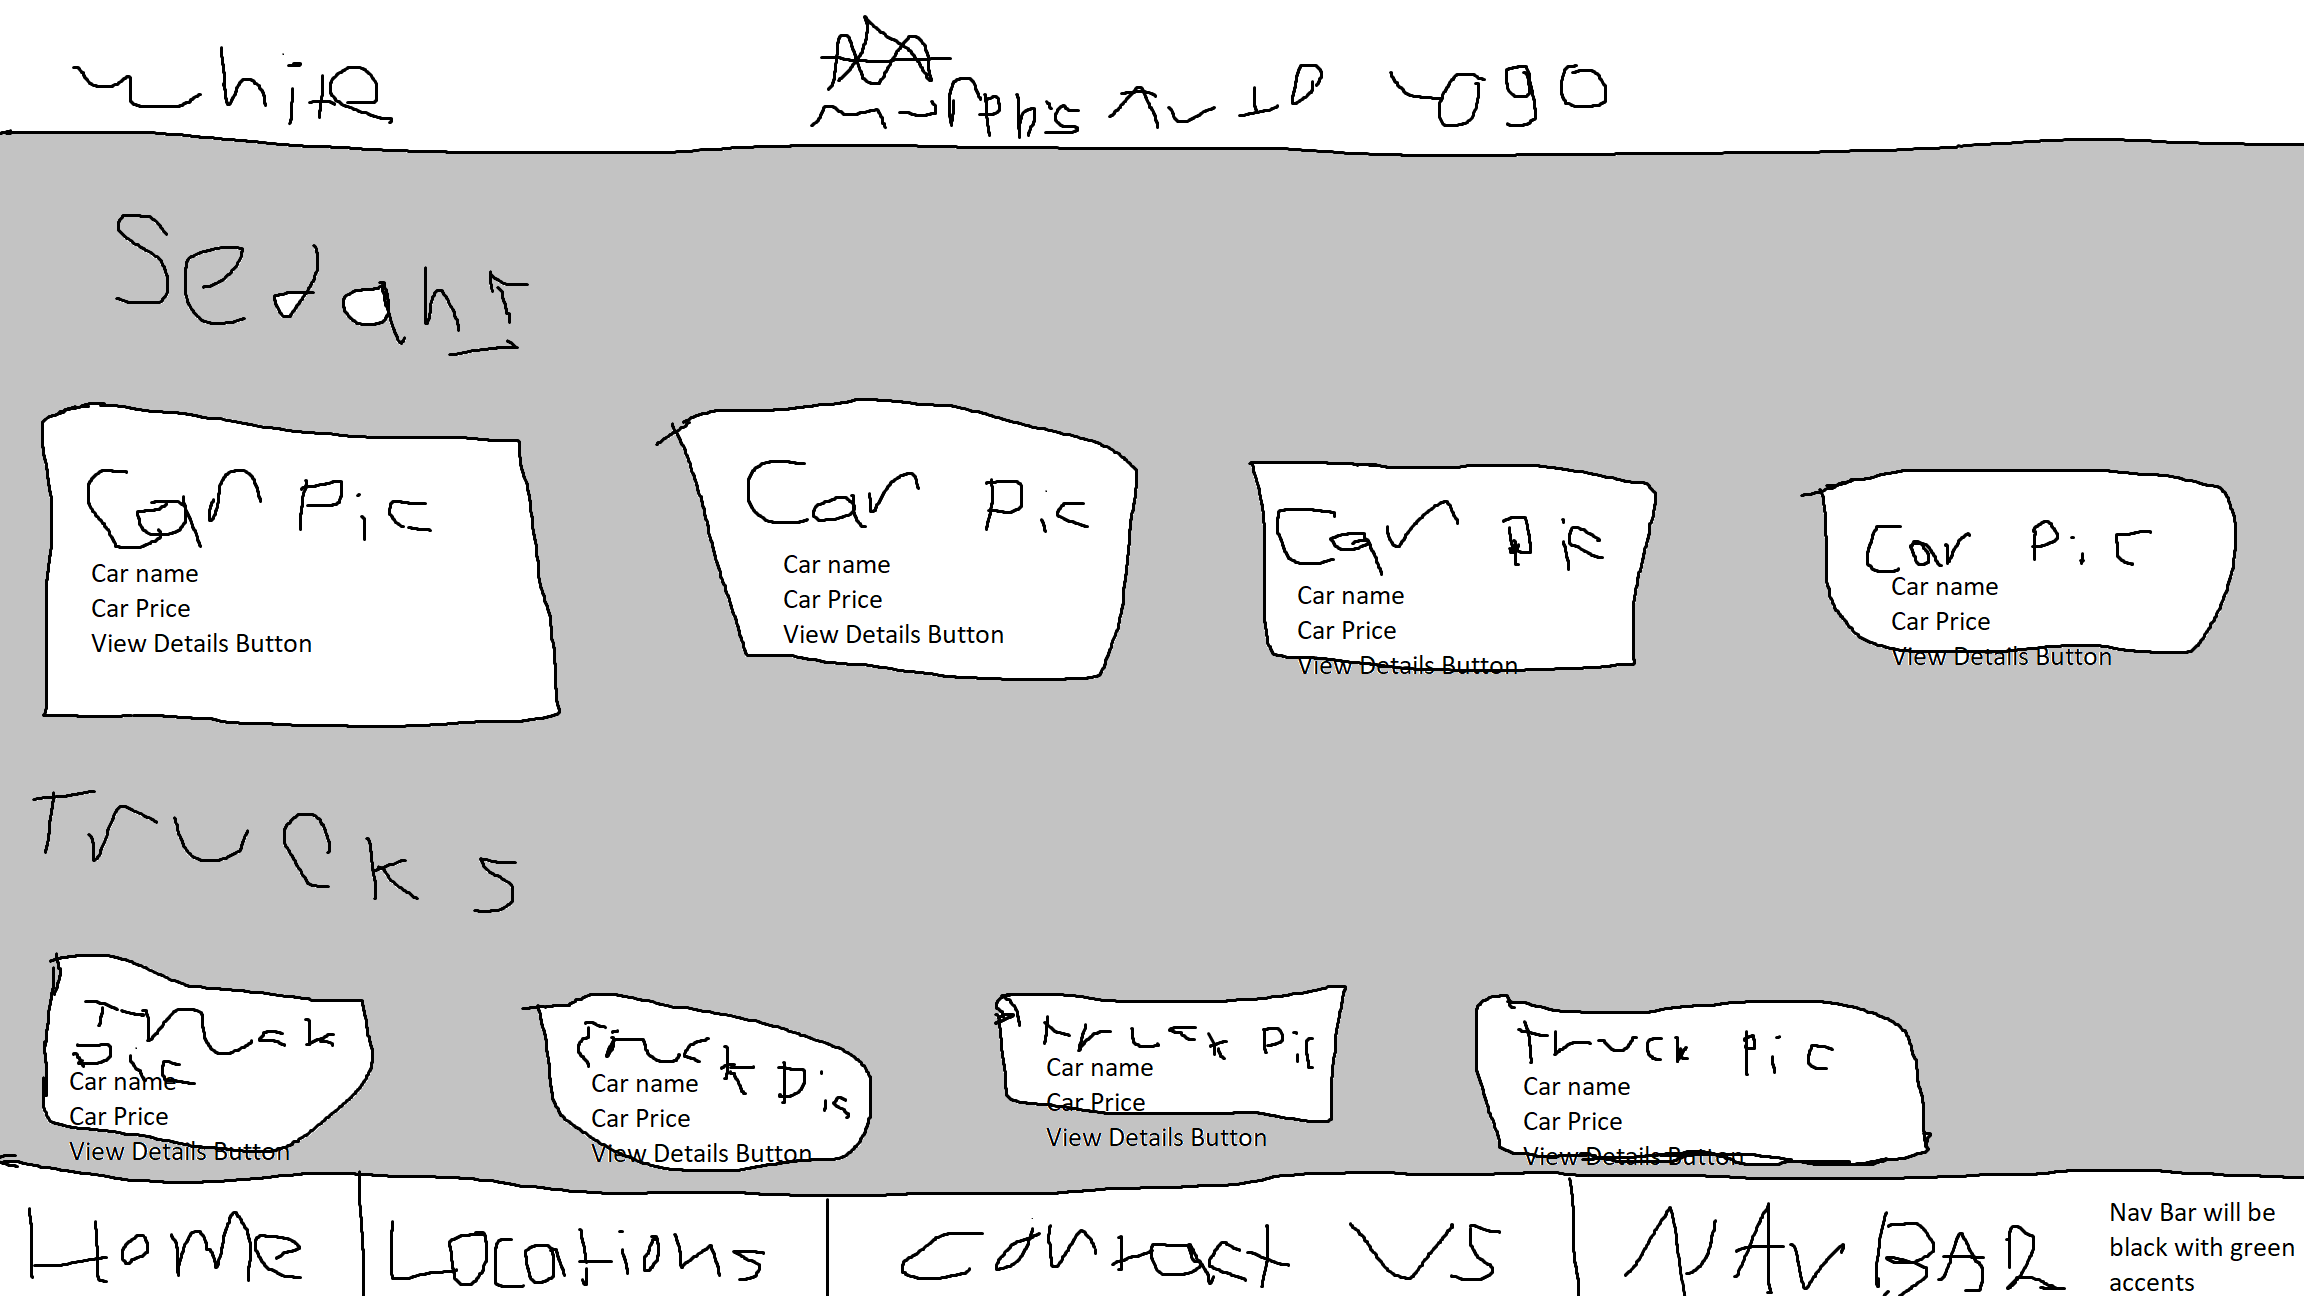 White
Morph's Auto Logo
Sedans
Car Pic
Car name
Car Price
View Details Button
Car Pic
Car name
Car Price
View Details Button
Car Pic
Car name
Car Price
View Details Button
Car Pic
Car name
Car Price
View Details Button
Trucks
Truck
Pic
Car name
Car Price
View Details Button
Truck Pic
Car name
Car Price
View Details Button
truck Pic
Car name
Car Price
View Details Button
truck Pic
Car name
Car Price
View Details Button
Home
Locations
Contact US
NAV BAR
Nav Bar will be
black with green
accents